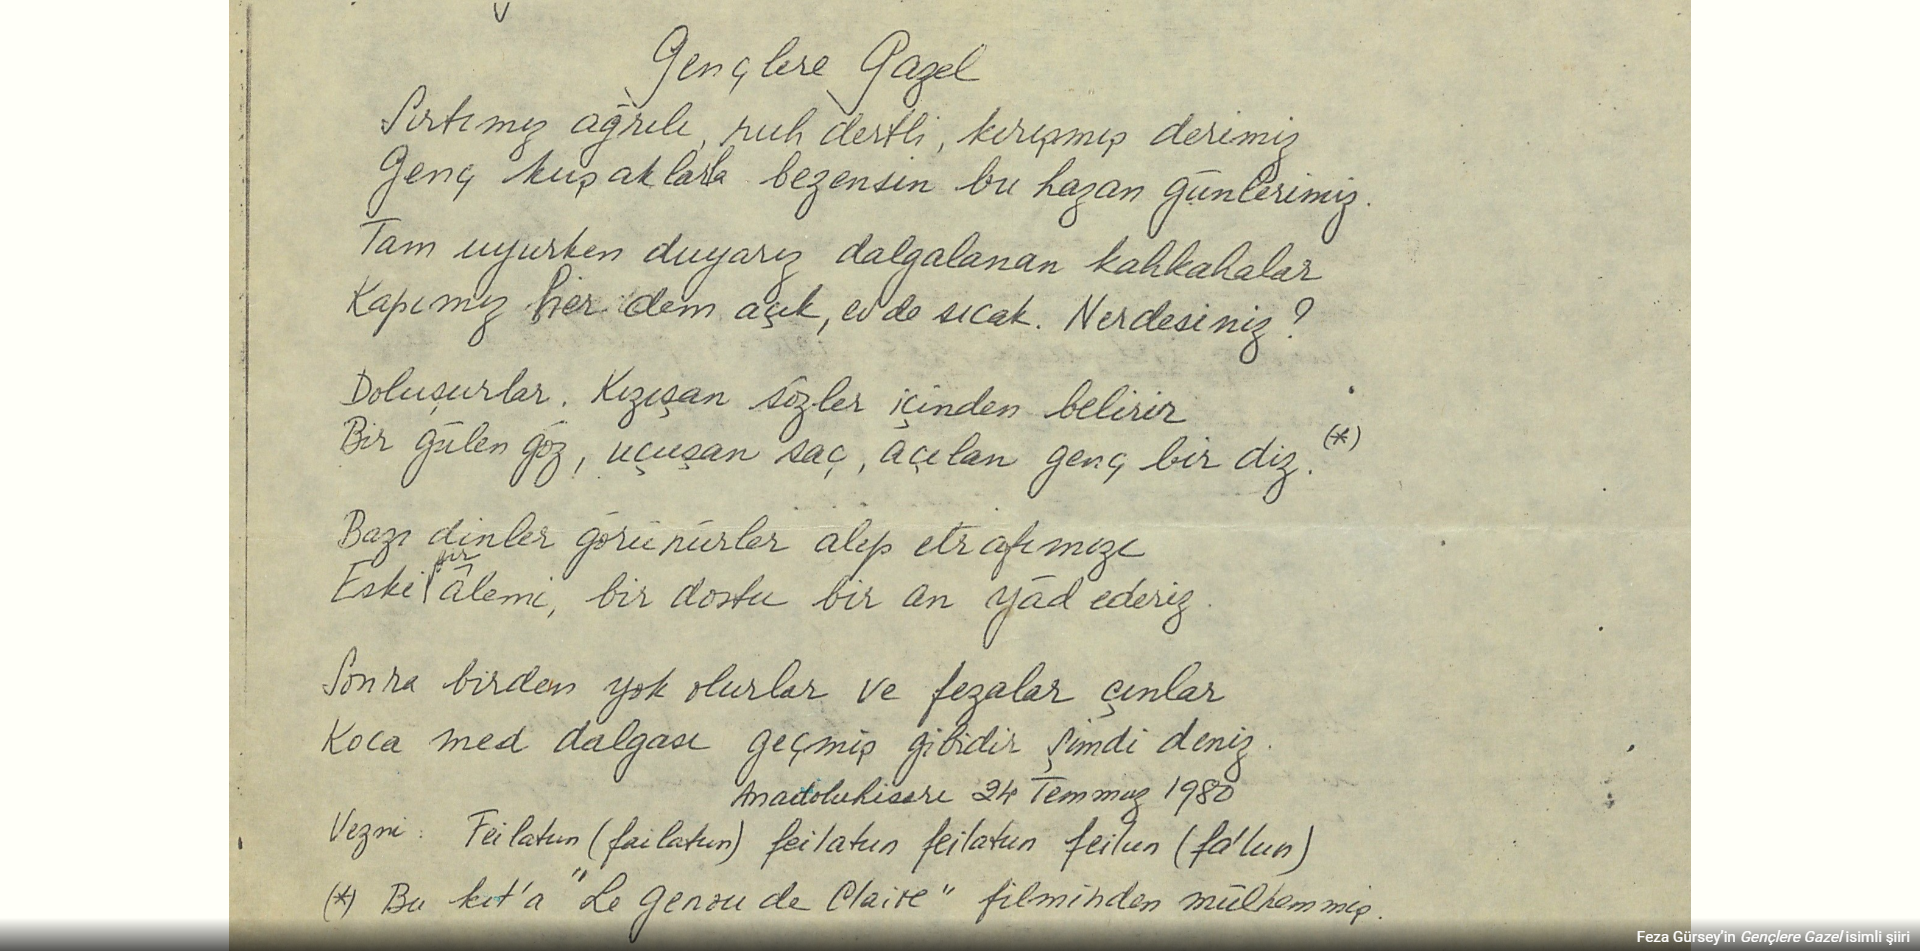 Gençlere Gazel
Sırtımız ağrılı, ruh dertli, kırışmış derimiz
Genç kuşaklarla bezensin bu hazan günlerimiz.
Tam uyurken duyarız dalgalanan kahkahalar
Kapımız her dem açık, ev de sıcak. Nerdesiniz?
Doluşurlar. Kızışan sözler içinden belirir
Bir gülen göz, uçuşan saç, açılan genç bir diz. (*)
Bazı dinler görünürler alıp etrafımızı
Eski bir âlemi, bir dostu bir an yâd ederiz.
Sonra birden yok olurlar ve fezalar çınlar
Koca med dalgası geçmiş gibidir şimdi deniz.
Anadoluhisarı 24 Temmuz 1980
Vezni: Feilatun (failatun) feilatun feilatun feilun (fa'lun)
(*) Bu kıt'a "Le genou de Claire" filminden mülhemmiş.
Feza Gürsey'in Gençlere Gazel isimli şiiri